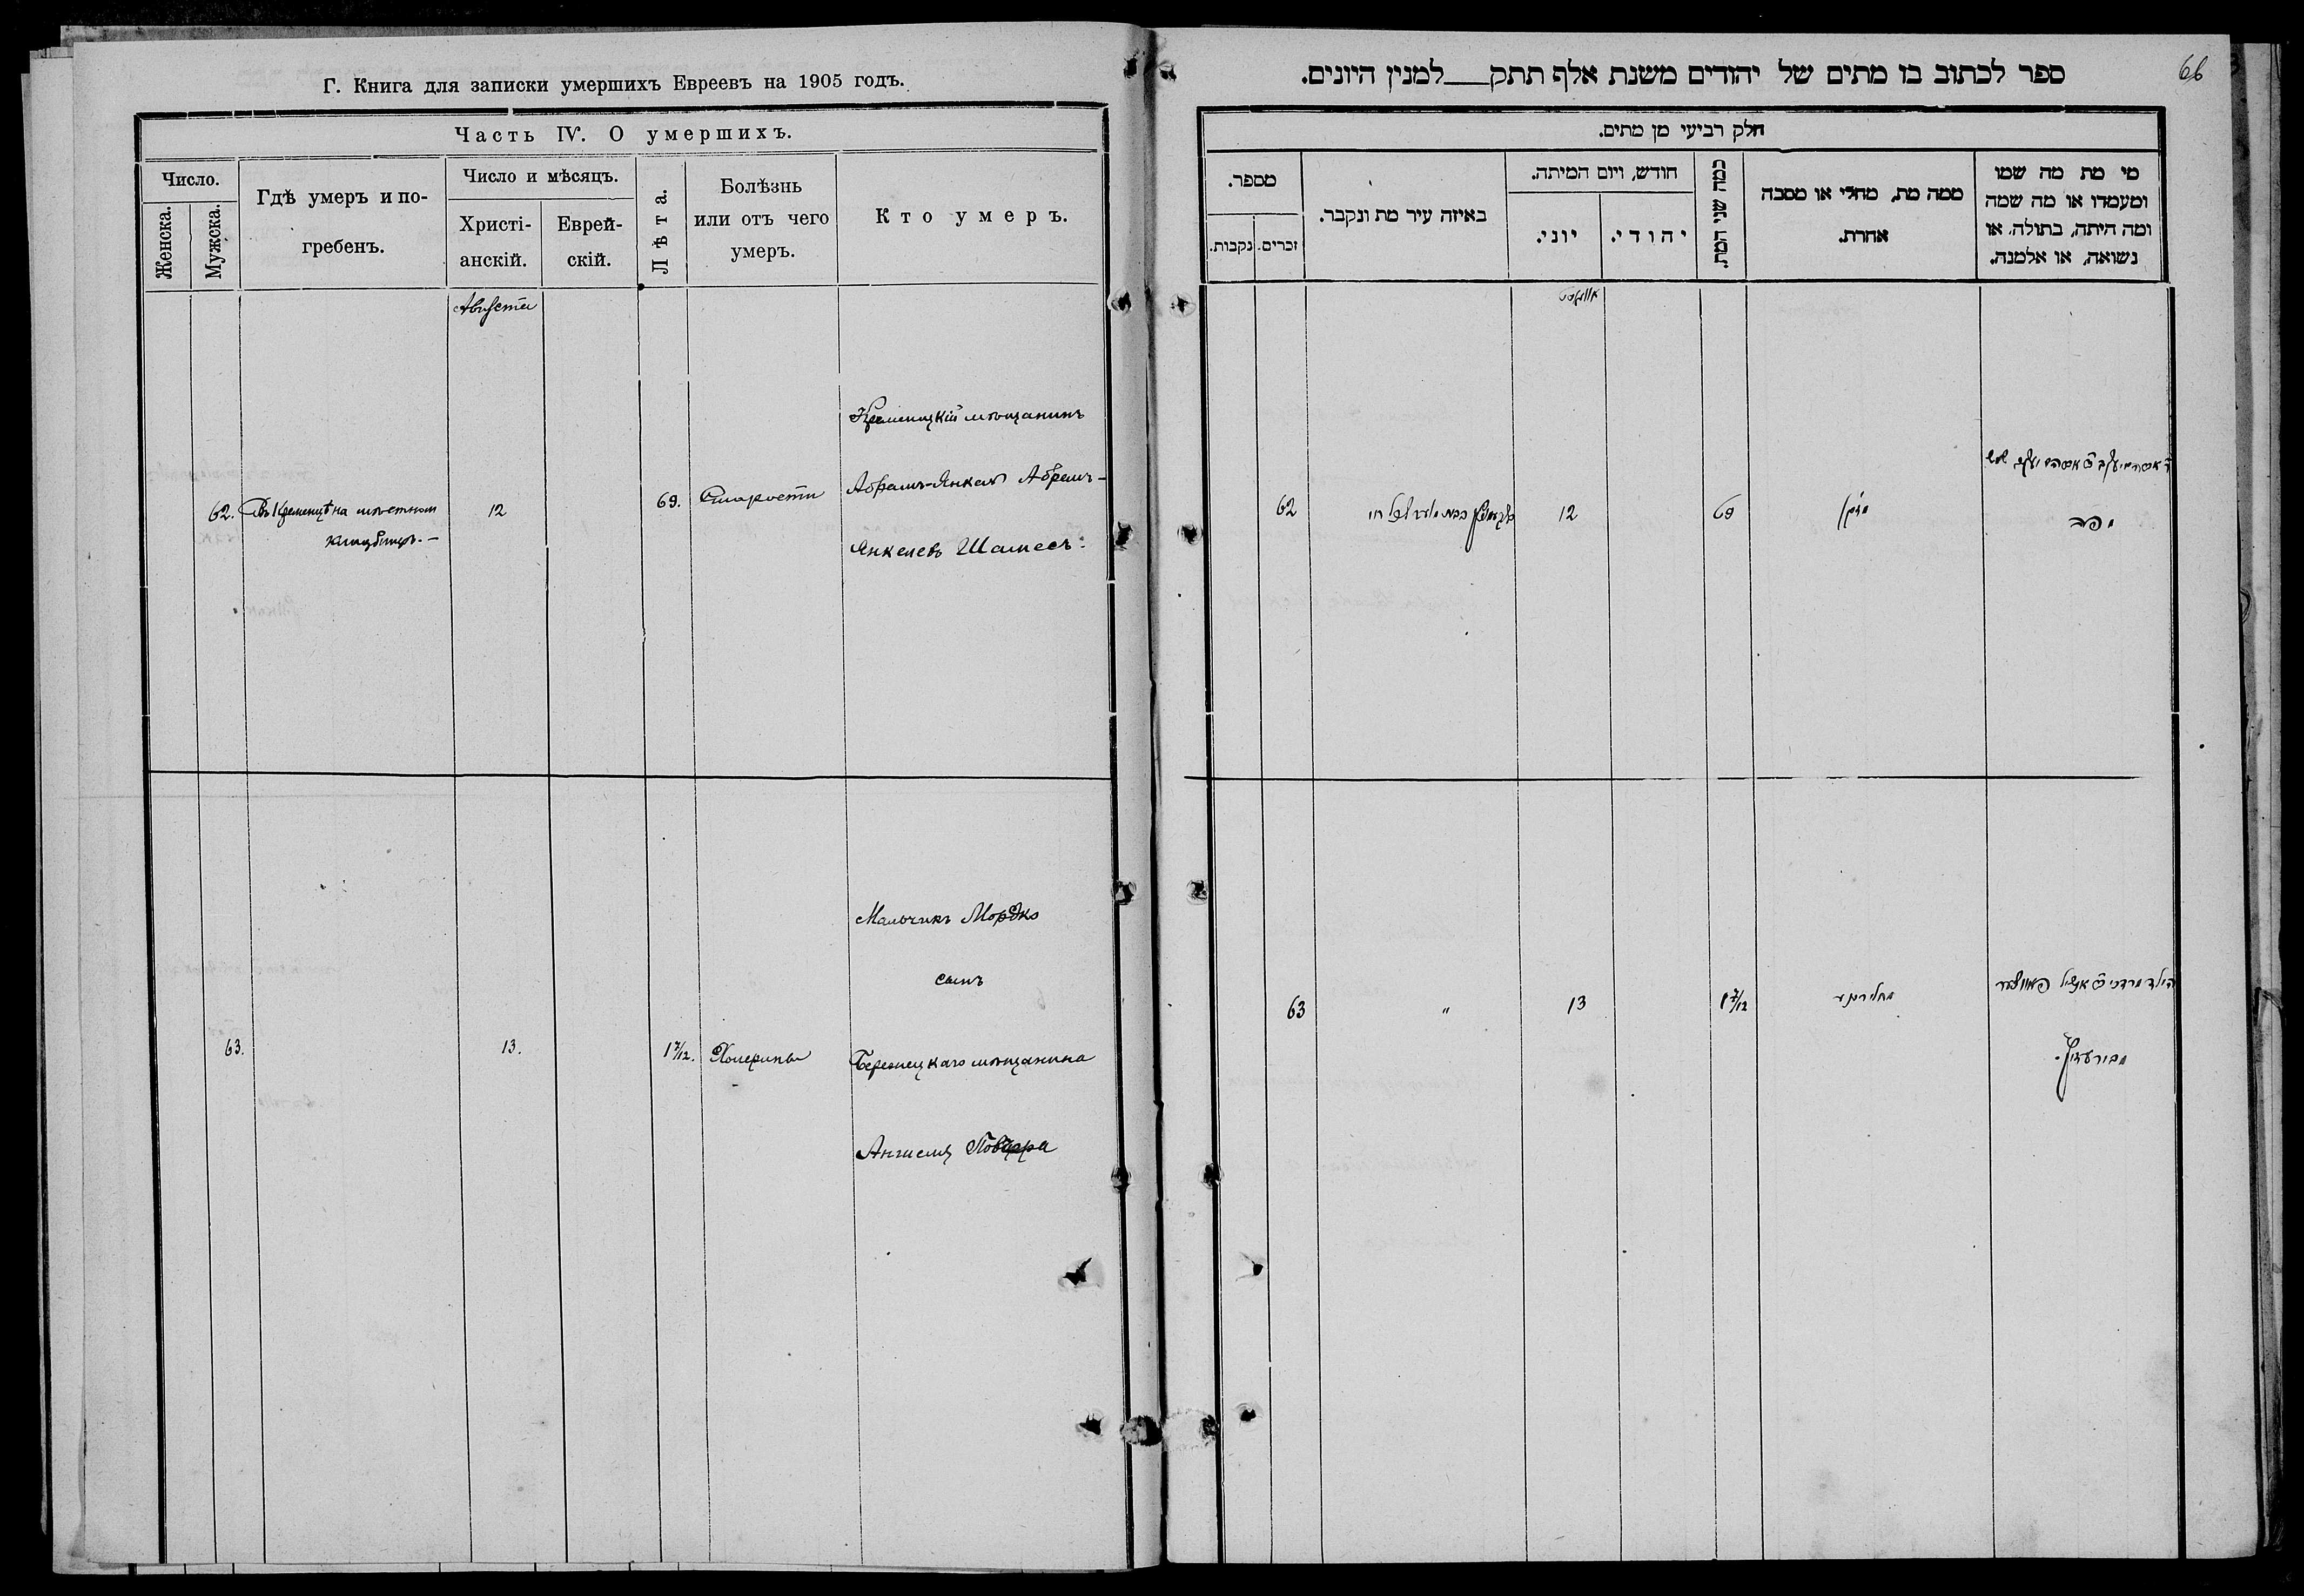 Г. Книга для записки умершихъ Евреевъ на 1905 годъ.
Часть IV. О умершихъ.
Число.
Женска.
Мужска.
Гдѣ умеръ и по-
гребенъ.
Число и мѣсяцъ.
Христі-
анскій.
Еврей-
скій.
Лѣта.
Болѣзнь
или отъ чего
умеръ.
Кто умеръ.
Августа
62.
Въ Кременцѣ на мѣстном
кладбищѣ. —
12
69.
Старости
Кременецкій мѣщанинъ
Абрамъ-Янкель Абрамъ-
Янкелевъ Шамесъ.
63.
13.
1 7/12.
Холерины
Мальчикъ Мордко
сынъ
Бережецкаго мѣщанина
Ангиеля
66
ספר לכתוב בו מתים של יהודים משנת אלף תתק למנין היונים.
חלק רביעי מן מתים.
מספר.
נקבות.
זכרים.
באיזה עיר מת ונקבר.
חודש, ויום המיתה.
יוני.
יהודי.
כמה שני המת.
ממה מת, מחלי או מסבה
אחרת.
מי מת מה שמו
ומעמדו או מה שמה
ומה היתה, בתולה, או
נשואה, או אלמנה.
אווגוסט
62
12
69
זקן
63
"
13
1 7/12
הילד מרדכי